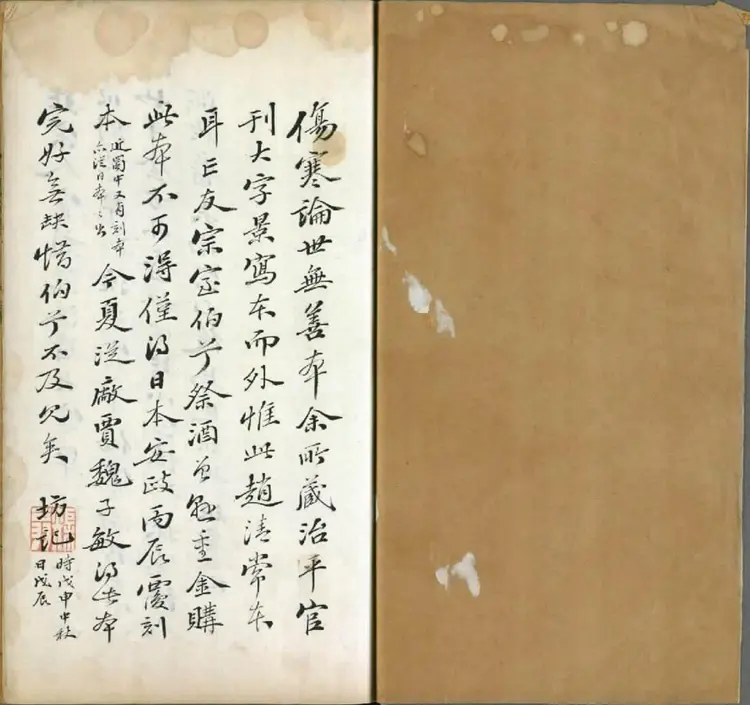 傷寒論世無善本余所藏治平官
刊大字景寫本而外惟此趙清常本
耳亡友宗室伯兮祭酒曾懸重金購
此本不可得僅得日本安政丙辰覆刻
本近蜀中又有刻本亦從日本之出今夏從廠賈魏子敏得此本
完好無缺惜伯兮不及見矣 坊記 時戊申中秋日戊辰